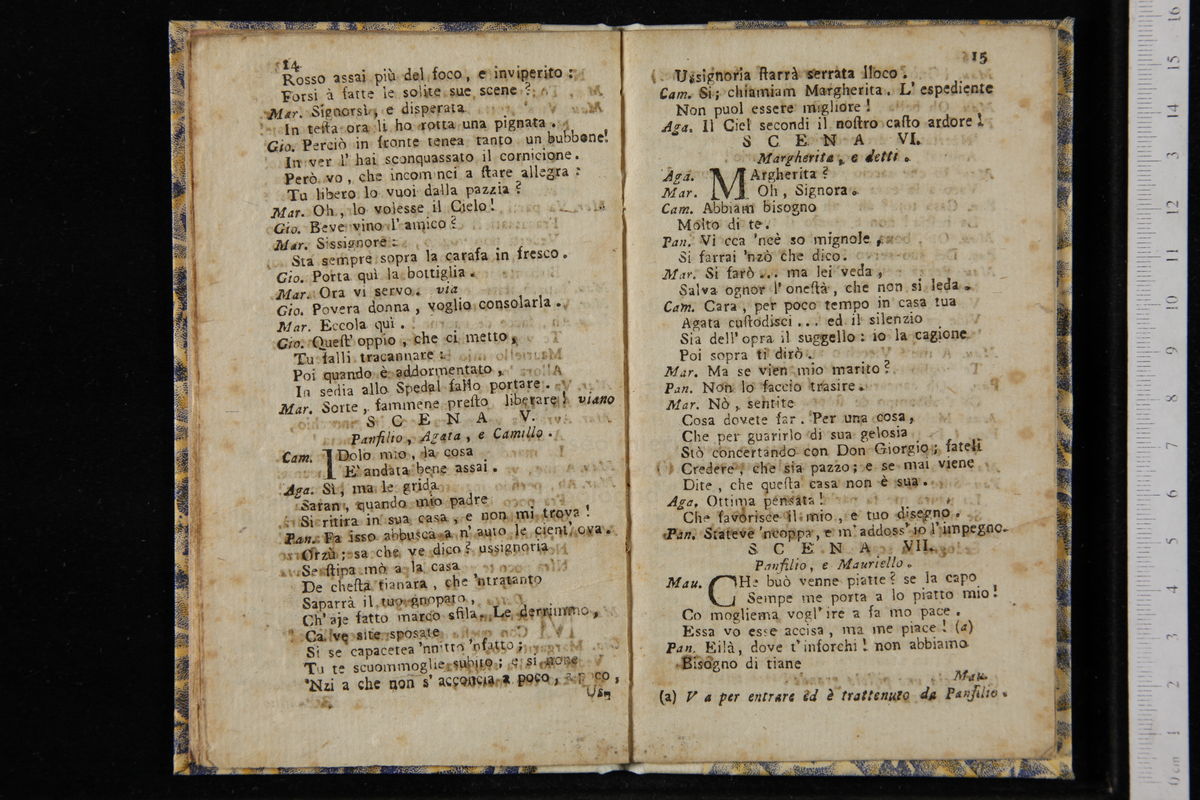 14
Rosso assai più del foco, e inviperito:
Forsi à fatte le solite sue scene?
Mar. Signorsì, e disperata
In teſta ora li ho rotta una pignata.
Gio. Perciò in fronte tenea tanto un bubbone!
In ver l' hai sconquassato il cornicione.
Però vo, che incominci a ſtare allegra:
Tu libero lo vuoi dalla pazzia?
Mar. Oh, lo volesse il Cielo!
Gio. Beve vino l' amico?
Mar. Sissignore:
Sta sempre sopra la carafa in fresco.
Gio. Porta quì la bottiglia.
Mar. Ora vi servo. via
Gio. Povera donna, voglio consolarla.
Mar. Eccola quì.
Gio. Queſt' oppio, che ci metto,
Tu falli tracannare:
Poi quando è addormentato,
In sedia allo Spedal fallo portare.
Mar. Sorte, fammene preſto liberare! viano
SCENA V.
Panfilio, Agata, e Camillo.
Cam. IDolo mio, la cosa
E' andata bene assai.
Aga. Sì, ma le grida
Saran, quando mio padre
Si ritira in sua casa, e non mi trova!
Pan. Fa isso abbusca a n' auto le cient' ova.
Orzù: sa che ve dico? ussignoria
Se ſtipa mò a la casa
De cheſta tianara, che 'ntratanto
Saparrà il tuo gnopato,
Ch' aje fatto marco sfila. Le derrimmo,
Ca ve site sposate
Si se capacetea 'nnitto 'nfatto;
Tu te scuommoglie subito; e si none
'Nzi a che non s' acconcia a poco, a poco,
Uss
15
Ussignoria ſtarrà serrata lloco.
Cam. Si; chiamiam Margherita. L' espediente
Non puol essere migliore!
Aga. Il Ciel secondi il noſtro caſto ardore!
SCENA VI.
Margherita, e detti.
Aga. MArgherita?
Mar. Oh, Signora.
Cam. Abbiam bisogno
Molto di te.
Pan. Vi cca 'nce so mignole,
Si farrai 'nzò che dico.
Mar. Si farò... ma lei veda,
Salva ognor l' oneſtà, che non si leda.
Cam. Cara, per poco tempo in casa tua
Agata cuſtodisci... ed il silenzio
Sia dell' opra il suggello: io la cagione
Poi sopra ti dirò.
Mar. Ma se vien mio marito?
Pan. Non lo faccio trasire.
Mar. Nò, sentite
Cosa dovete far. Per una cosa,
Che per guarirlo di sua gelosia
Stò concertando con Don Giorgio; fateli
Credere, che sia pazzo; e se mai viene
Dite, che queſta casa non è sua.
Aga. Ottima pensata!
Che favorisce il mio, e tuo disegno.
Pan. Stateve 'ncoppa, e m' addoss' io l' impegno.
SCENA VII.
Panfilio, e Mauriello.
Mau. CHe buò venne piatte? se la capo
Sempe me porta a lo piatto mio!
Co mogliema vogl' ire a fa mo pace.
Essa vo esse accisa, ma me piace! (a)
Pan. Eilà, dove t' inforchi! non abbiamo
Bisogno di tiane
Mau.
(a) Va per entrare ed è trattenuto da Panfilio.